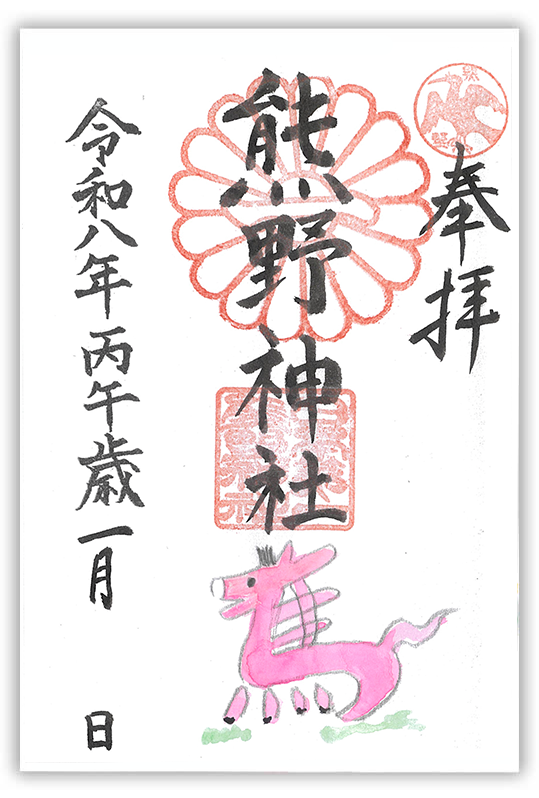 奉拝
熊野神社
令和八年丙午歳一月 日